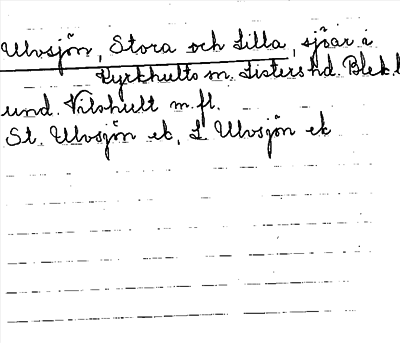 Ulvsjön, Stora och Lilla, sjöar i
Kyrkhults sn. Listers hd. Blek. l
und. Vilshult m. fl.
St. Ulvsjön ek, L Ulvsjön ek